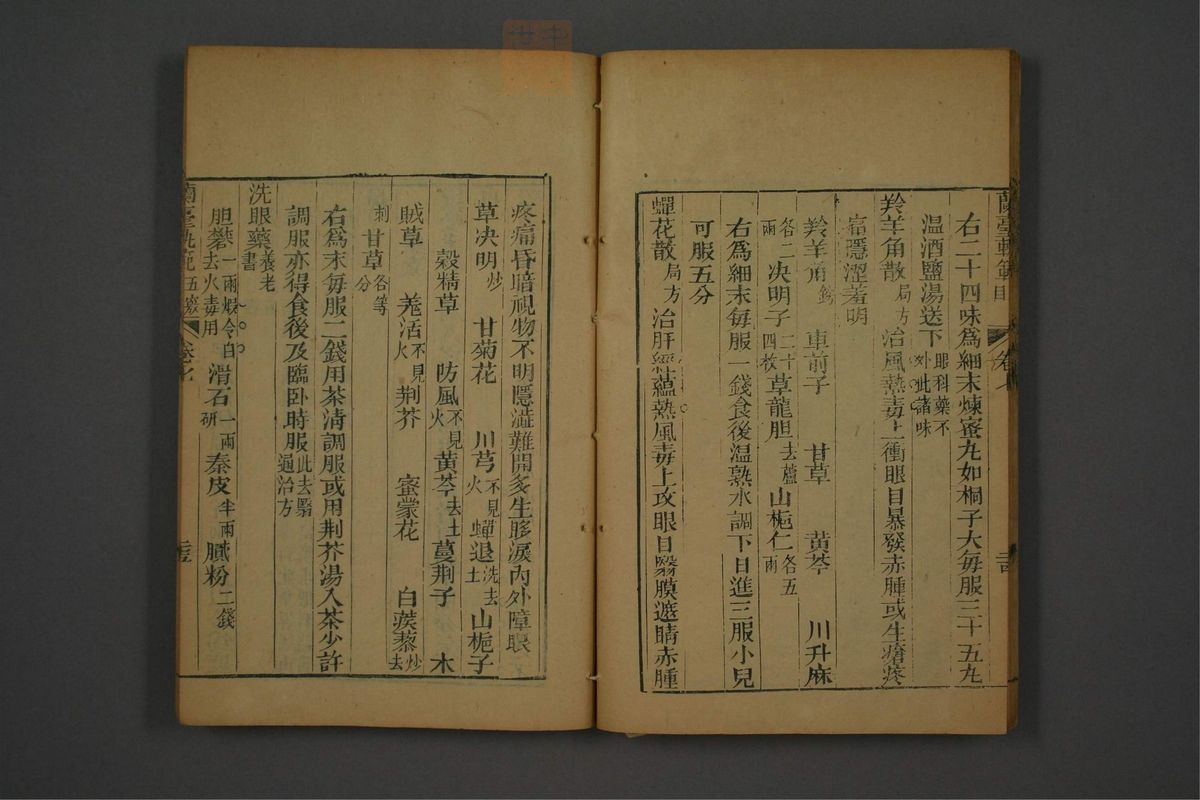 蘭臺軌範 目 卷七
右二十四味爲細末煉蜜丸如桐子大每服三十五丸
温酒鹽湯送下眼科藥不外此諸味
羚羊角散局方 治風熱毒上衝眼目暴發赤腫或生瘡疼
痛隱澀羞明
羚羊角 車前子 甘草 黃芩 川升麻
各二兩 决明子二十四枚 草龍胆去蘆 山梔仁各五兩
右爲細末每服一錢食後温熟水調下日進三服小兒
可服五分
蟬花散局方 治肝經蘊熱風毒上攻眼目翳膜遮睛赤腫
疼痛昏暗視物不明隱澁難開多生眵淚內外障眼
草决明炒 甘菊花 川芎不見火 蟬退洗去土 山梔子
穀精草 防風不見火 黃芩去土 蔓荆子 木
賊草 羗活不見火 荆芥 蜜蒙花 白蒺藜炒去
刺 甘草各等分
右爲末每服二錢用茶淸調服或用荆芥湯入茶少許
調服亦得食後及臨卧時服此去翳過治方
洗眼藥養老書
胆礬一兩煅令白去火毒用 滑石一兩研 秦皮半兩 膩粉二錢
蘭臺軌範 卷七